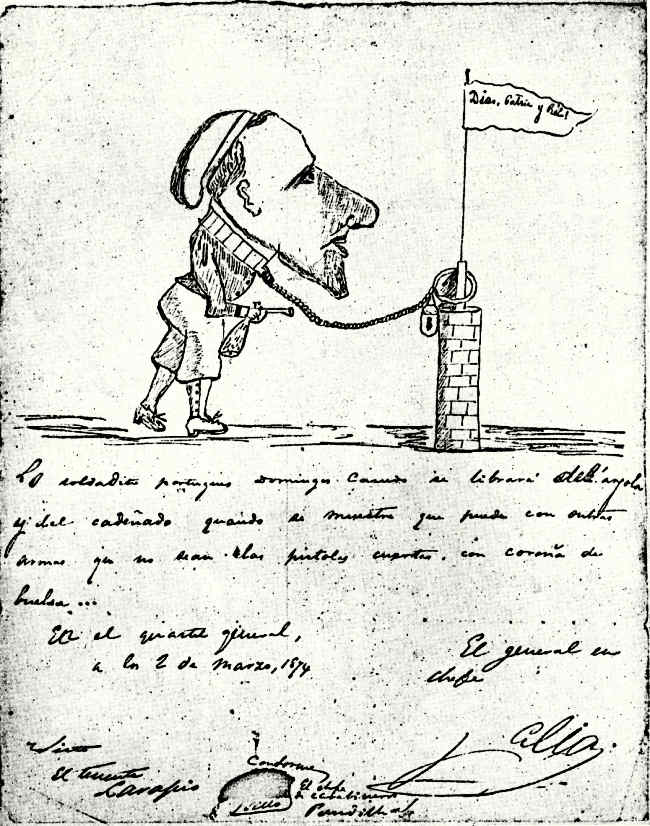 Dios, Patria y Rei!
Lo soldadito portugues Domingos Cauda se librará
y del cadeñado quando se muestre que puede con outras
armas que no sean elas pistolas cupertas, con coroña de
buelsa...
En el quartel general,
a los 2 de Marzo, 1874
El general en
chefe
Celia
Visto
El tenente
Lavapies
Conforme
El chefe
de
Sello